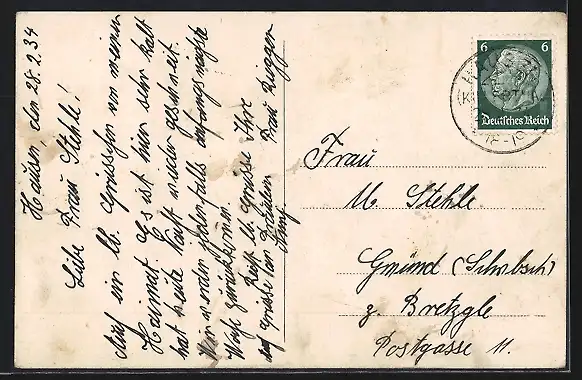 Hausen, den 28.2.34
Liebe Frau Stehle!
Auch ein lb. Grüssgen von meiner
Heimat. Es ist hier sehr kalt
hat heute Nacht wieder geschneit.
Wir werden jedenfalls anfangs nächste
Woche zurückkommen.
Herzl. Grüsse Ihre
Frau Rugger
auch Grüsse an Fräulein
6 6
Deutsches Reich
18-19
Frau
M. Stehle
Gmünd (Schwbsch)
z. Bretzgle
Postgasse 11.